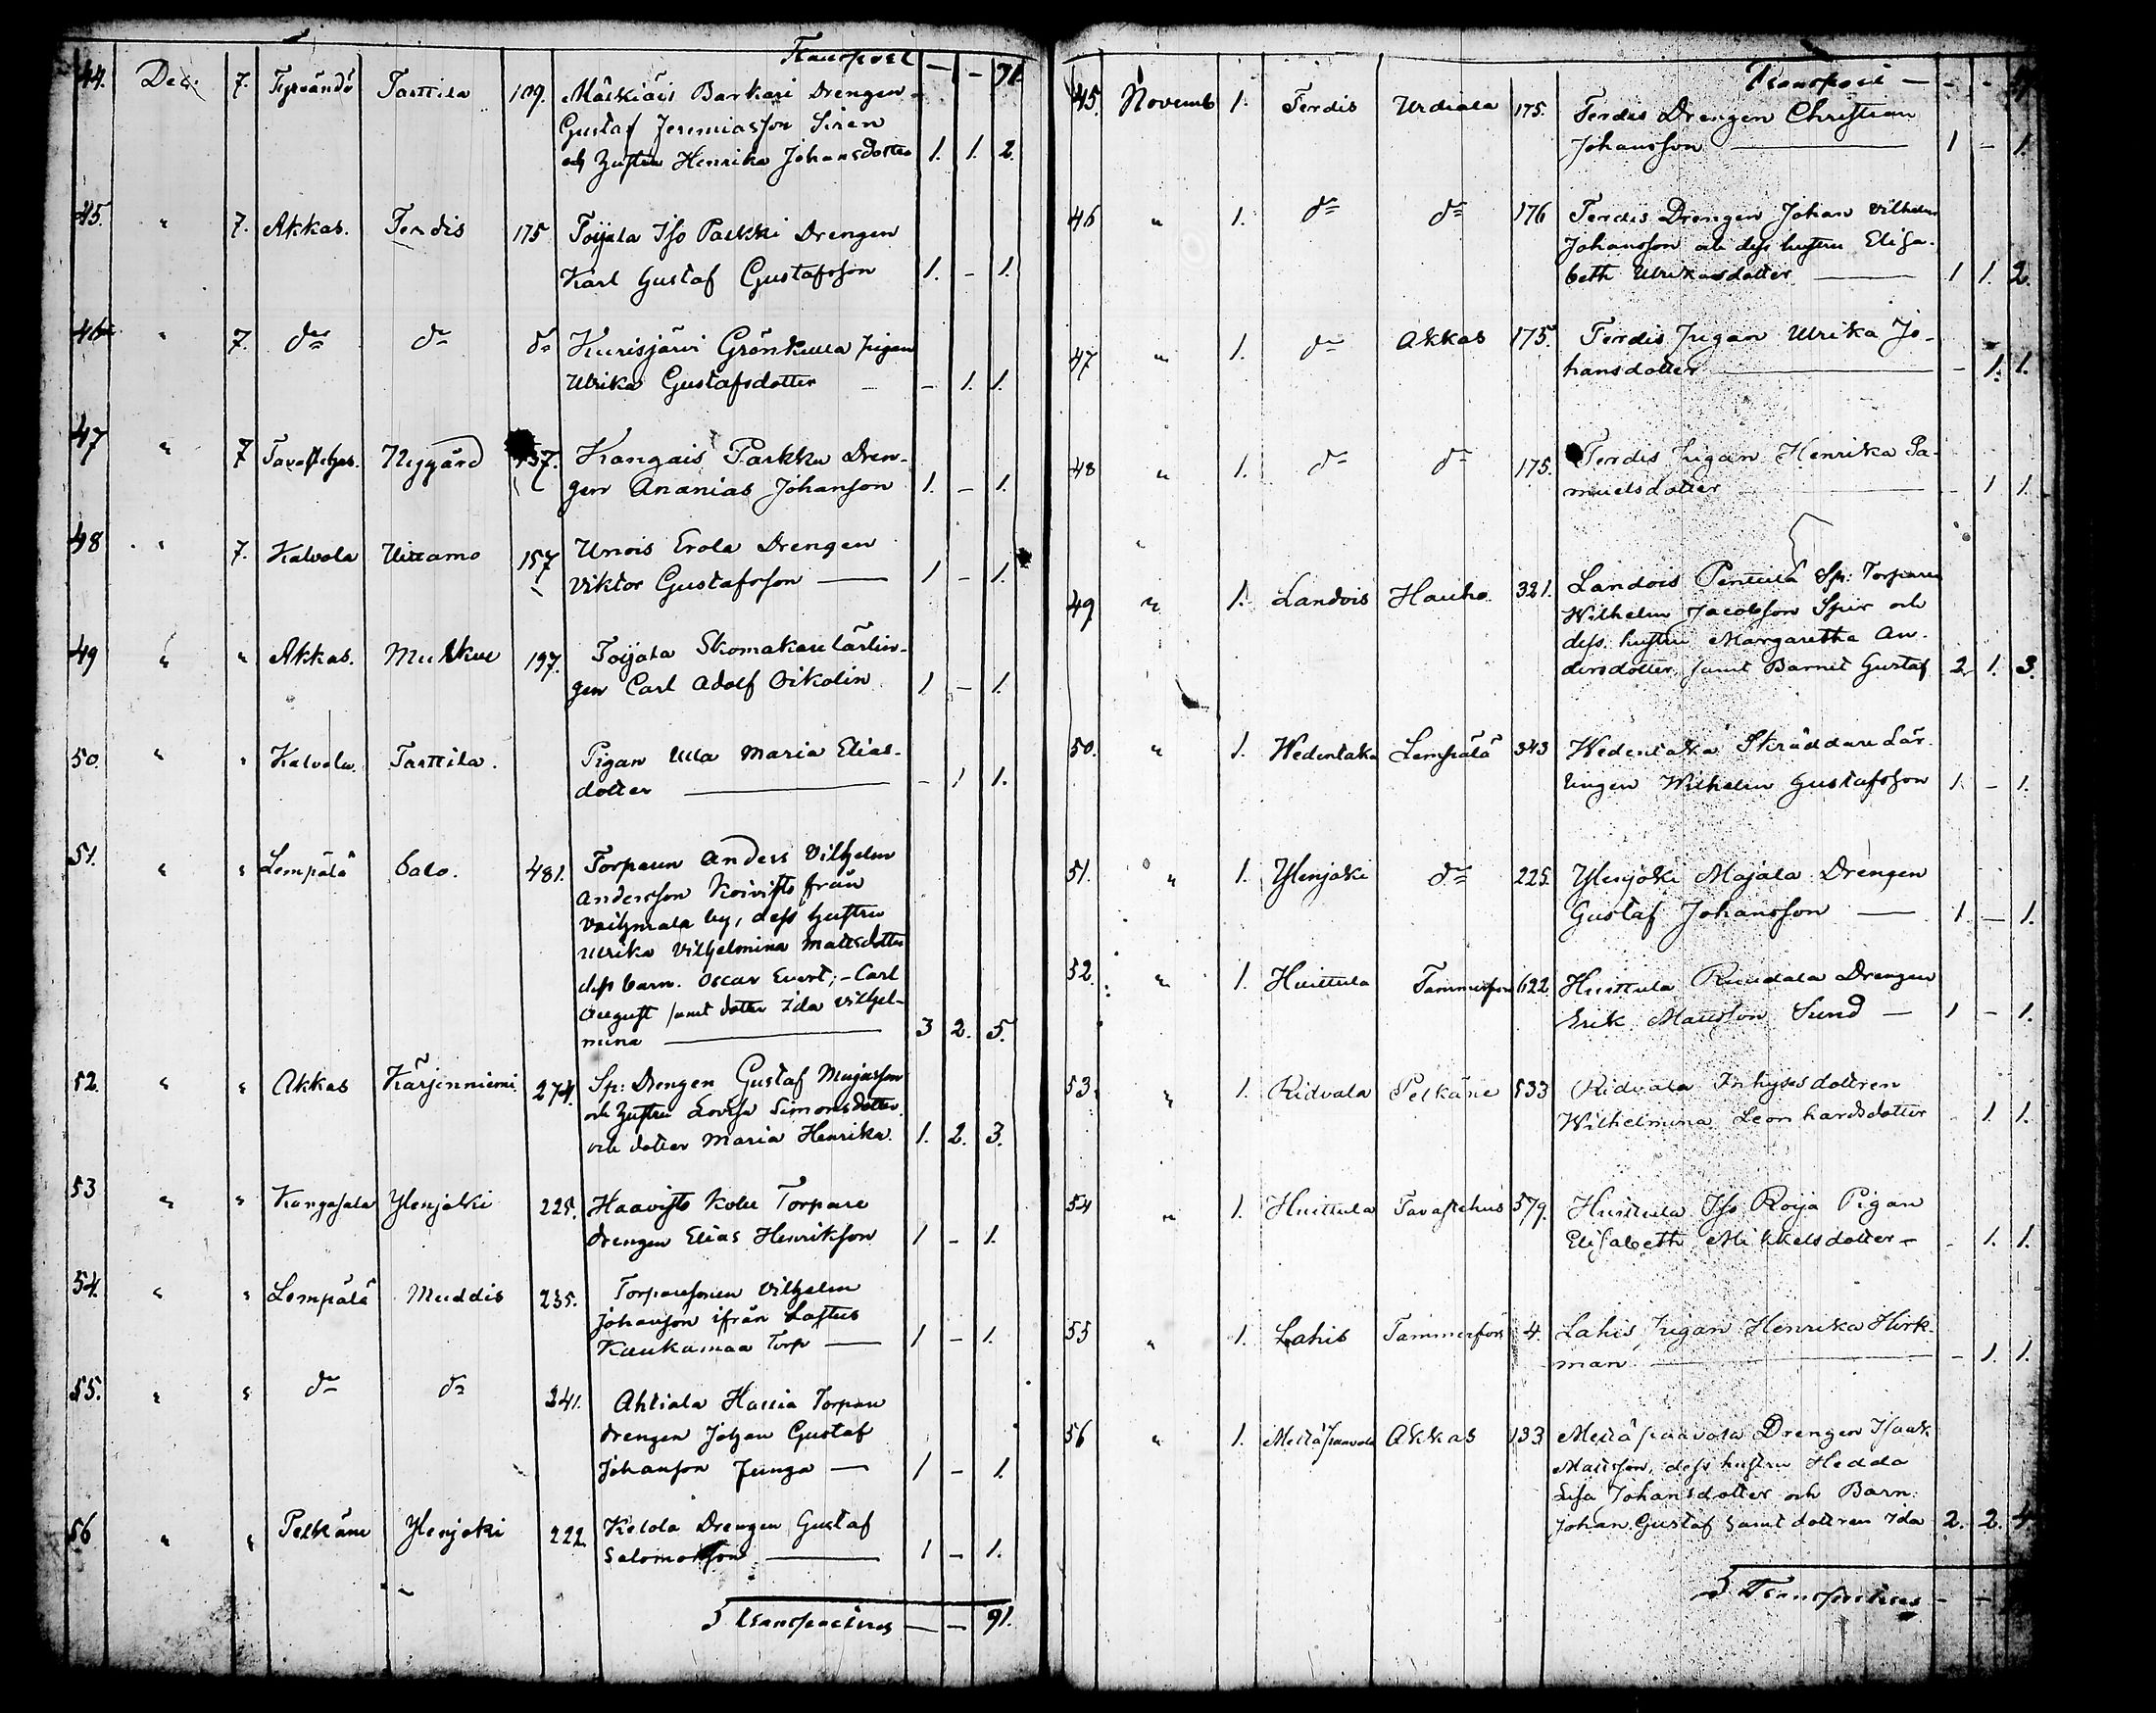 Transport — — 71.
44. Dec. 7. Tyrvändö Tarttila 109. Mälkiäis Barkari Drengen
Gustaf Jeremiasson Siren
och hustru Henrika Johansdotter 1. 1. 2.
45. " 7. Akkas. Terdis 175 Toijala Iso Paskki Drengen
Karl Gustaf Gustafsson 1. - 1.
46 " 7. do do do Kurisjärvi Grönkulla pigan
Ulrika Gustafsdotter - 1. 1.
47 " 7 Tavastehus. Nygård 157. Kangais Parkku Dren-
gen Ananias Johanson 1. - 1.
48 " 7. Kalvola Uittamo 157 Unois Erola Drengen
Viktor Gustafsson — 1 - 1.
49 " " Akkas. Mulkue 197. Toijala Skomakare lärlin-
gen Carl Adolf Oikolin 1 - 1.
50. " " Kalvola. Tarttila. Pigan Ulla Maria Elias-
dotter — - 1 1.
51. " " Lempälä Salo. 481. Torparen Anders Vilhelm
Andersson Koivisto från
Vaihmala by, dess hustru
Ulrika Vilhelmina Mattsdotter
dess barn. Oscar Evert; - Carl
August samt dotter Ida Vilhel-
mina — 3 2. 5.
52. " " Akkas Kärjenniemi 274. Sp: Drengen Gustaf
och hustru Lovisa Simonsdotter
och dotter Maria Henrika. 1. 2. 3.
53 " " Kangasala Ylenjoki 225. Haavisto Torpare
drengen Elias Henrikson 1 - 1.
54. " " Lempälä Muddis 235. Torparesonen Vilhelm
Johanson ifrån Lastus
Kaukamaa Torp — 1 - 1.
55. " " do do 241. Ahtiala Torpare
drengen Johan Gustaf
Johanson Junga — 1 - 1.
56 " " Pelkäne Ylenjoki 222. Ketola Drengen Gustaf
Salomonson — 1 - 1.
Transporteras — — 91.
Transport — - -
45. Novemb 1. Terdis Urdiala 175. Terdis Drengen Christian
Johansson — 1 - 1.
46 " 1. do do 176 Terdis Drengen Johan Vilhelm
Johansson och dess hustru Elisa-
beth Ulrikasdotter — 1 1. 2.
47 " 1. do Akkas 175. Terdis Pigan Ulrika Jo-
hansdotter — - 1. 1.
48 " 1. do do 175. Terdis Pigan Henrika Sa-
muelsdotter - 1 1.
49. " 1. Landois Hauho 321. Landois Penttilä Sp: Torparen
Wilhelm Jacobsson Spir och
dess hustru Margaretha An-
dersdotter, samt Barnet Gustaf 2. 1. 3.
50. " 1. Wedentaka Lempälä 343 Wedentaka Skräddare Lär-
lingen Wilhelm Gustafsson 1. - 1.
51. " 1. Ylenjoki do 225. Ylenjoki Majala Drengen
Gustaf Johansson — 1. - 1.
52. " 1. Huittula Tammerfors 622. Huittula Ruudala Drengen
Erik Mattsson Sund — 1 - 1.
53. " 1. Ridvala Pelkäne 533 Ridvala Inhysesdottren
Wilhelmina Leonhardsdotter - 1. 1.
54 " 1. Huittula Tavastehus 579. Huittula Iso Roija Pigan
Elisabeth Mikkelsdotter - - 1. 1.
55 " 1. Lahis Tammerfors 4. Lahis Pigan Henrika Hirk-
man — - 1. 1.
56 " 1. Metsäpaavola Akkas 133 Metsäpaavola Drengen Isaak
Mattsson, dess hustru Hedda
Lisa Johansdotter och Barn:
Johan Gustaf samt dottren Ida 2. 2. 4.
Transporteras - -